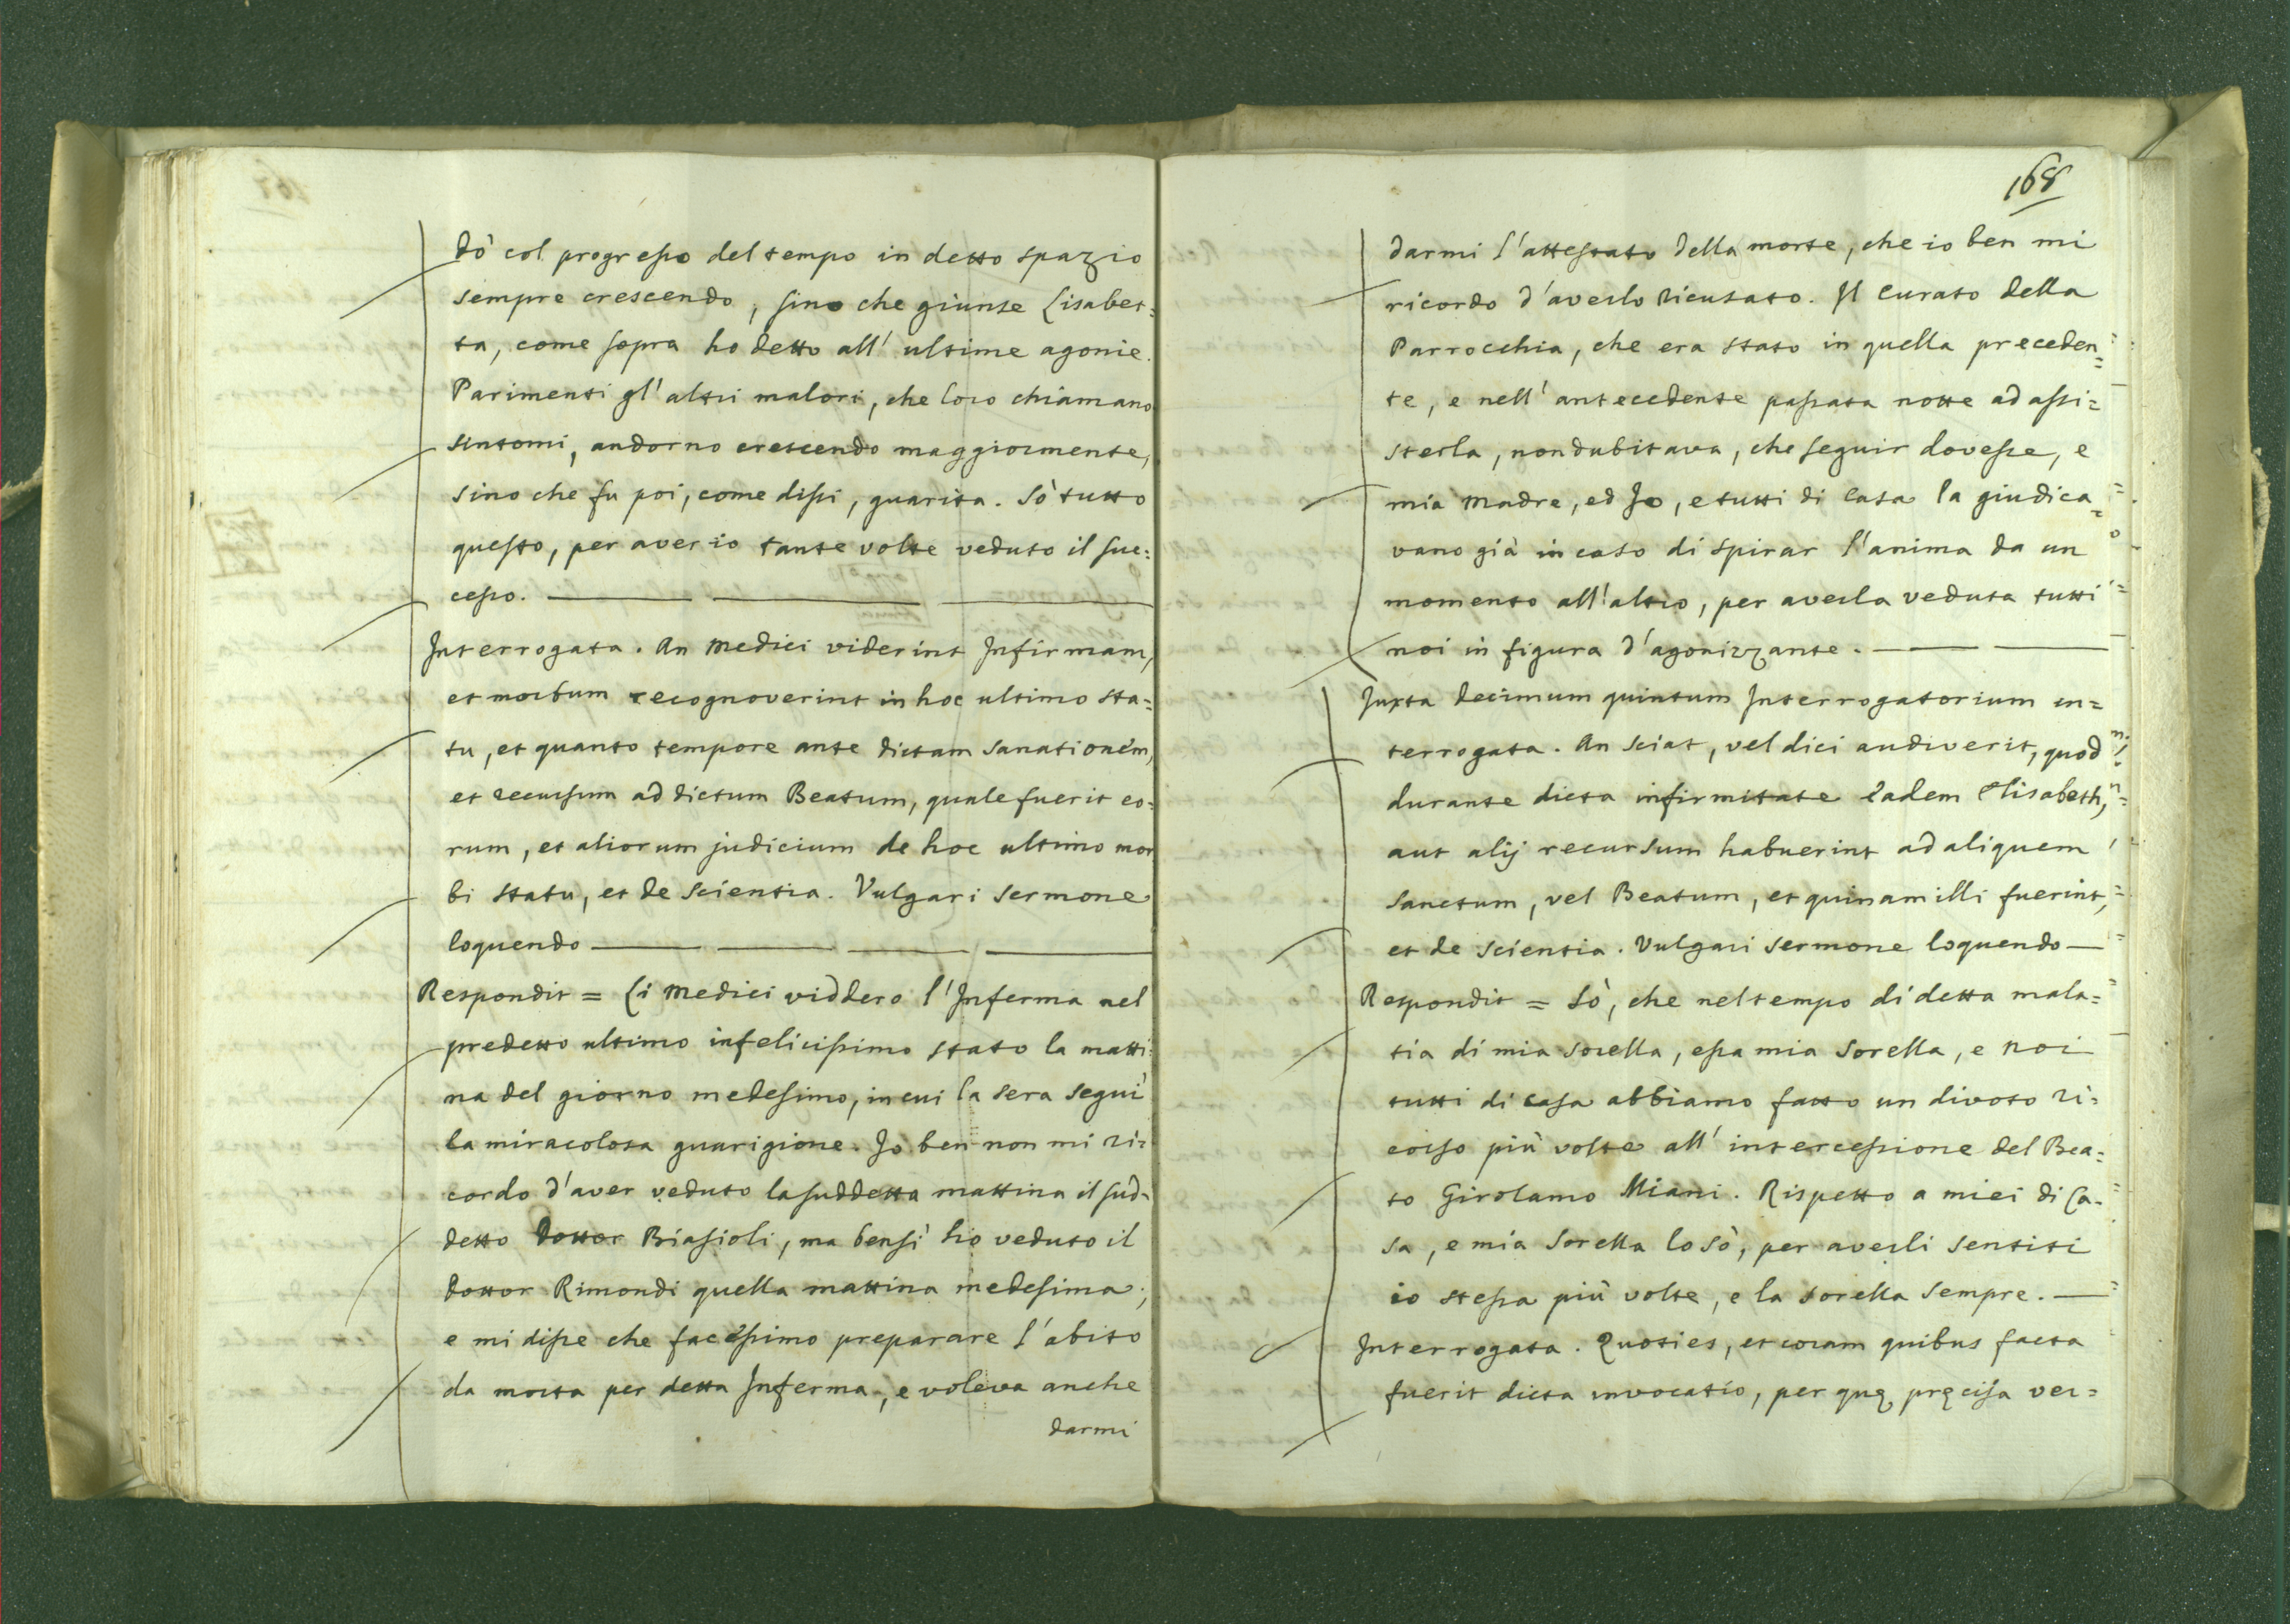 dò col progresso del tempo in detto spazio
sempre crescendo, sino che giunse Lisabet=
ta, come sopra ho detto all' ultime agonie.
Parimenti gl' altri malori, che loro chiamano
sintomi, andorno crescendo maggiormente,
sino che fu poi, come dissi, guarita. Sò tutto
questo, per aver io tante volte veduto il suc=
cesso.
Interrogata. An Medici viderint Infirmam,
et morbum recognoverint in hoc ultimo sta=
tu, et quanto tempore ante dictam sanationem,
et recursum ad dictum Beatum, quale fuerit eo=
rum, et aliorum judicium de hoc ultimo mor
bi statu, et de scientia. Vulgari sermone
loquendo
Respondit = Li Medici viddero l' Inferma nel
predetto ultimo infelicissimo stato la matti=
na del giorno medesimo, in cui la sera seguì
la miracolosa guarigione. Io ben non mi ri=
cordo d'aver veduto la suddetta mattina il sud=
detto Dottor Biasioli, ma bensì hò veduto il
Dottor Rimondi quella mattina medesima;
e mi disse che facessimo preparare l' abito
da morta per detta Inferma, e voleva anche
darmi
168
darmi l'attestato della morte, che io ben mi
ricordo d'averlo ricusato. Il Curato della
Parrocchia, che era stato in quella preceden=
te, e nell' antecedente passata notte ad assi=
sterla, non dubitava, che seguir dovesse, e
mia Madre, ed Io, e tutti di Casa la giudica=
vano già in caso di spirar l'anima da un
momento all' altro, per averla veduta tutti
noi in figura d'agonizzante.
Juxta decimum quintum Interrogatorium in=
terrogata. An sciat, vel dici audiverit, quod
durante dicta infirmitate eadem Elisabeth,
aut alij recursum habuerint ad aliquem
Sanctum, vel Beatum, et quinam illi fuerint,
et de scientia. Vulgari sermone loquendo
Respondit = Sò, che nel tempo di detta mala=
tia di mia sorella, essa mia sorella, e noi
tutti di casa abbiamo fatto un divoto ri=
corso più volte all' intercessione del Bea=
to Girolamo Miani. Rispetto a miei di Ca=
sa, e mia Sorella lo sò, per averli sentiti
io stessa più volte, e la sorella sempre.
Interrogata. Quoties, et coram quibus facta
fuerit dicta invocatio, per quę pręcisa ver=